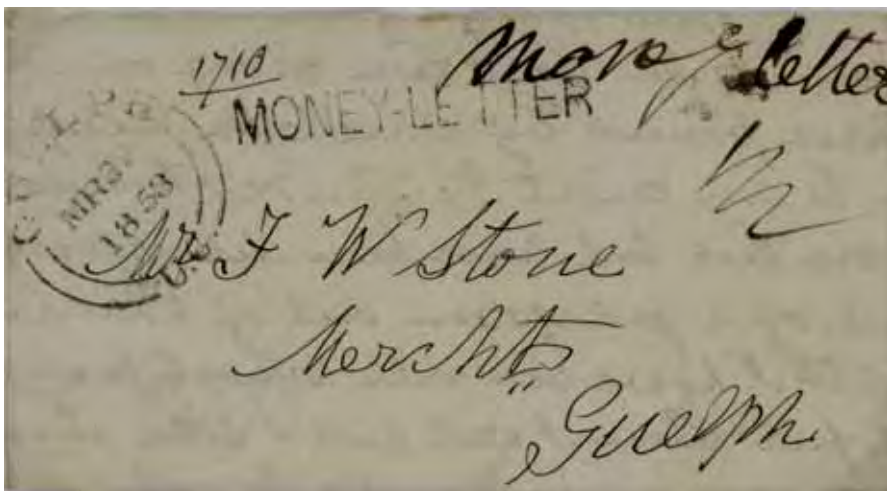 1710
Money Letter
MONEY-LETTER
GUELPH
MR 3
1853
U.C.
Mr. F W Stone
Mercht
Guelph